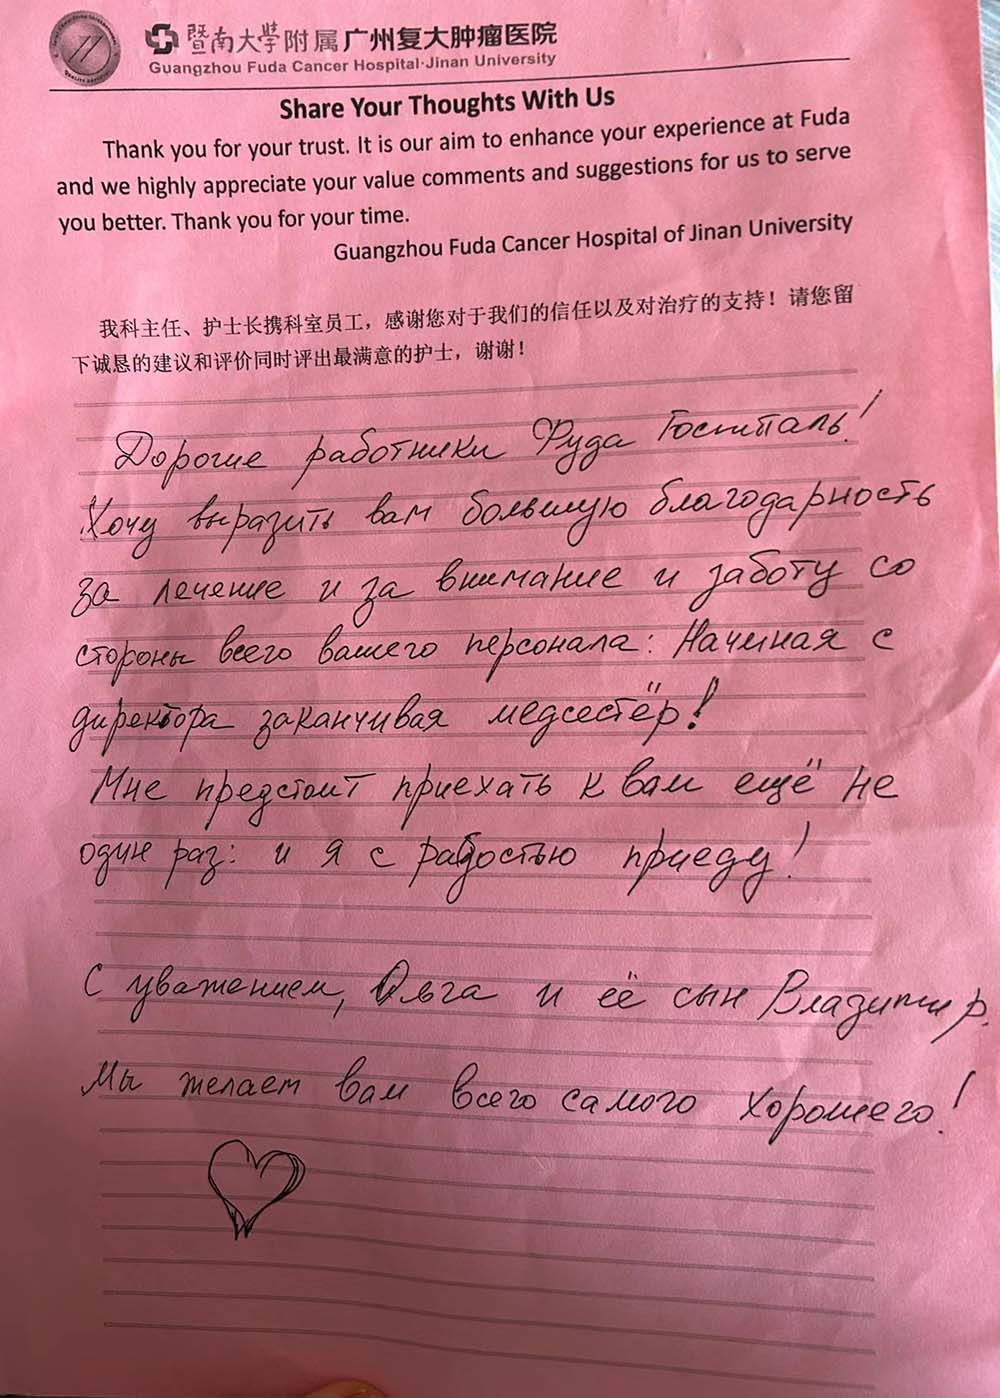 暨南大學附属广州复大肿瘤医院
Guangzhou Fuda Cancer Hospital·Jinan University
Share Your Thoughts With Us
Thank you for your trust. It is our aim to enhance your experience at Fuda
and we highly appreciate your value comments and suggestions for us to serve
you better. Thank you for your time.
Guangzhou Fuda Cancer Hospital of Jinan University
我科主任、护士长携科室员工，感谢您对于我们的信任以及对治疗的支持！请您留
下诚恳的建议和评价同时评出最满意的护士，谢谢！
Дорогие работники Фуда Госпиталь!
Хочу выразить вам большую благодарность
за лечение и за внимание и заботу со
стороны всего вашего персонала: Начиная с
директора заканчивая медсестёр!
Мне предстоит приехать к вам ещё не
один раз: и я с радостью приеду!
С уважением, Ольга и её сын Владимир.
Мы желаем вам всего самого хорошего!